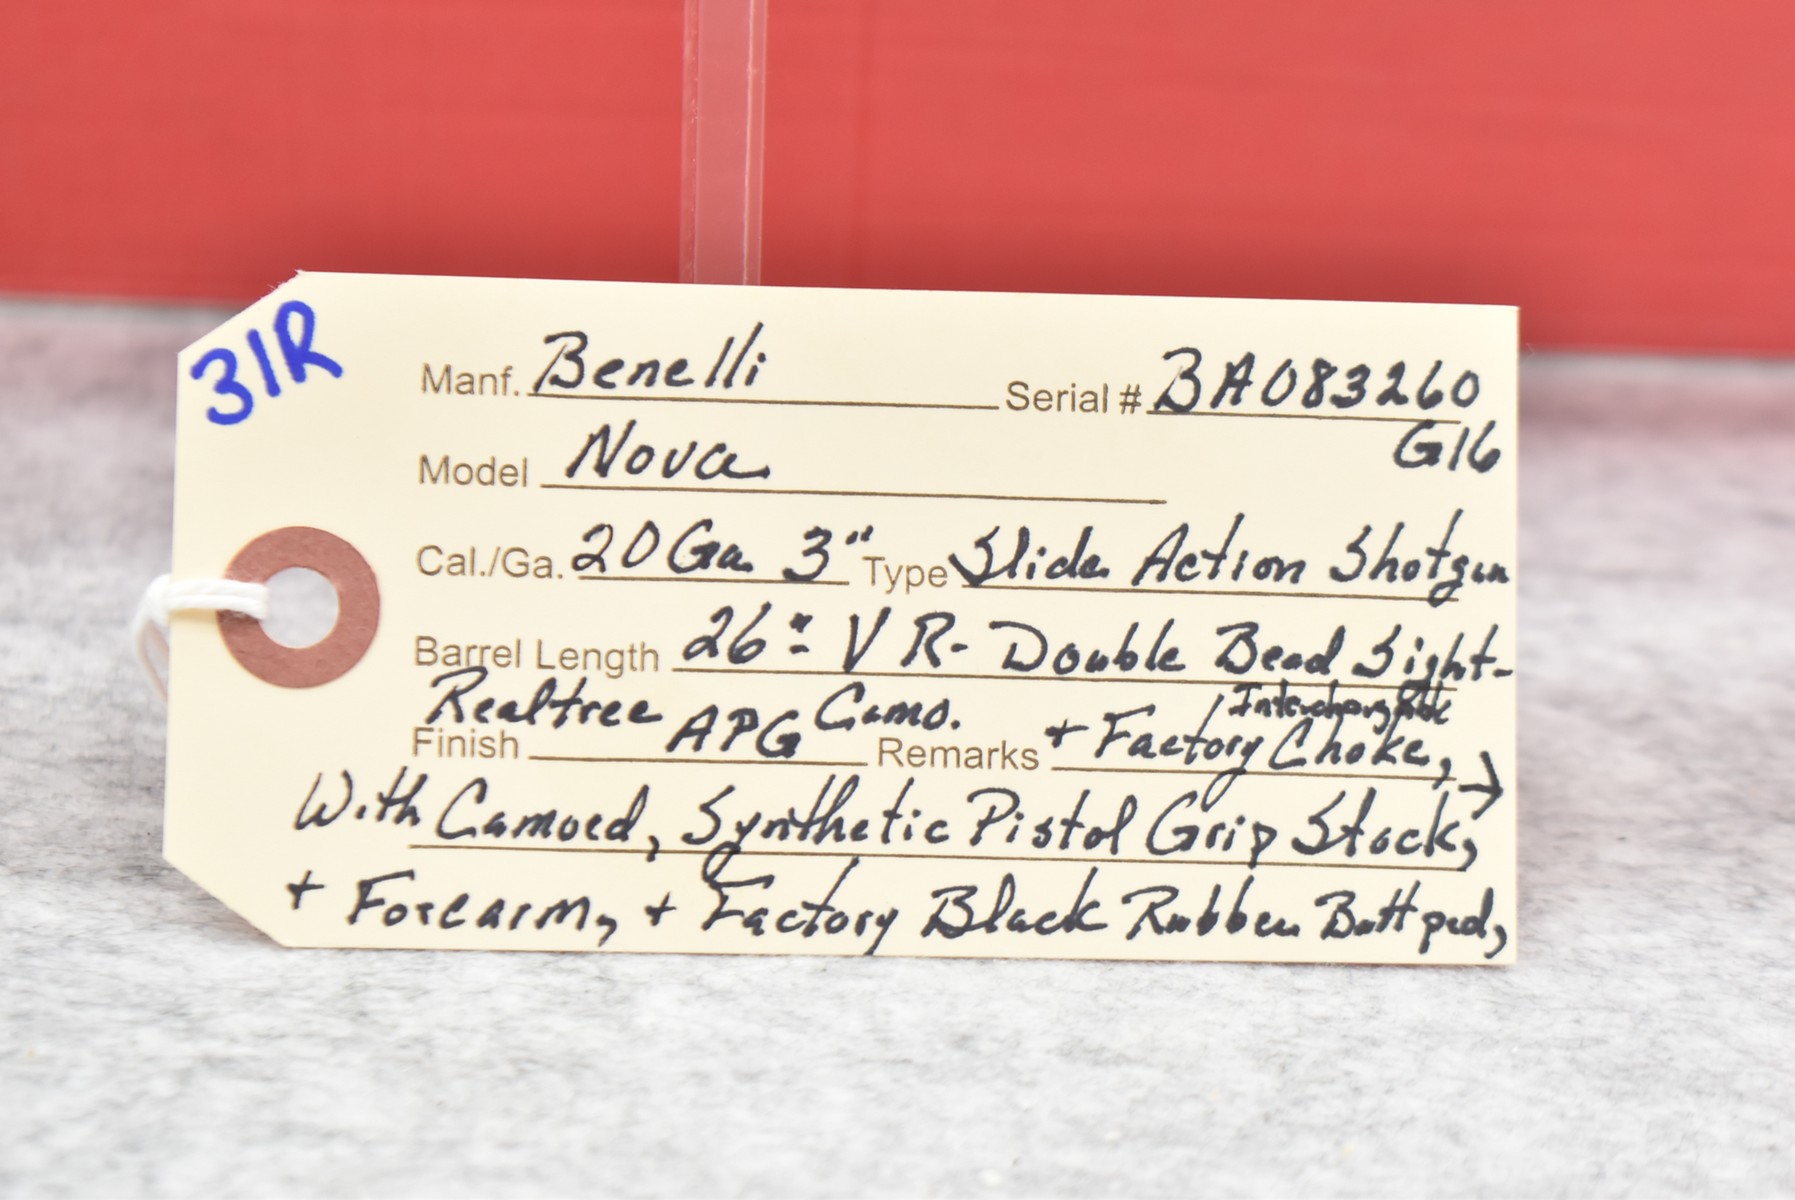 31R
Manf. Benelli Serial # BA083260
G16
Model Nova
Cal./Ga. 20 Ga. 3" Type Slide Action Shotgun
Barrel Length 26" VR- Double Bead Sight-
Finish Realtree APG Camo. Remarks + Factory Interchangeable Choke, →
With Camoed, Synthetic Pistol Grip Stock,
+ Forearm, + Factory Black Rubber Buttpad,